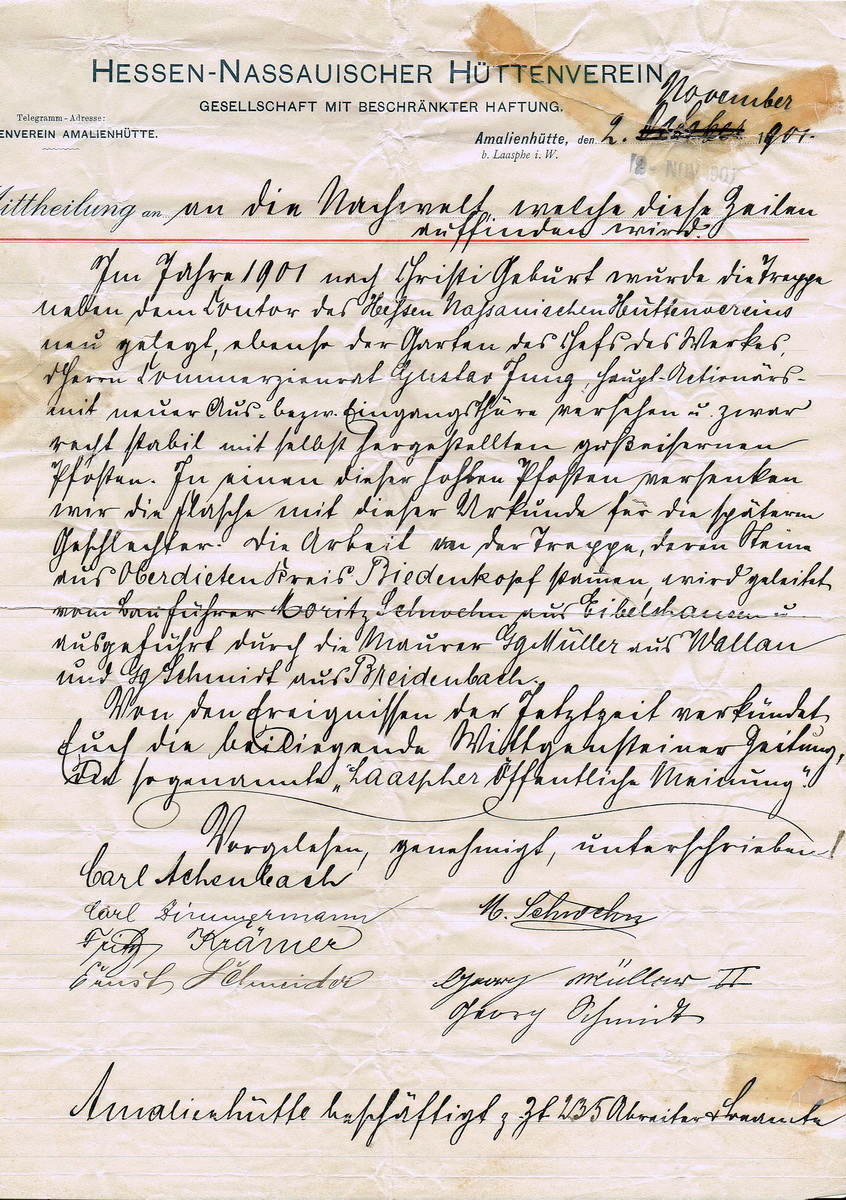 HESSEN-NASSAUISCHER HÜTTENVEREIN
GESELLSCHAFT MIT BESCHRÄNKTER HAFTUNG.
Telegramm-Adresse:
ENVEREIN AMALIENHÜTTE.
November
Amalienhütte, den 2. 1901.
b. Laasphe i. W.
2 - NOV 1901
Mittheilung an an die Nachwelt, welche diese Zeilen
auffinden wird.
Im Jahre 1901 nach Christi Geburt wurde die Treppe
neben dem Contor des Hessen Nassauischen Hüttenvereins
neu gelegt, ebenso der Garten des Chefs des Werkes,
Herrn Commerzienrat Gustav Jung, Haupt-Actionärs-
mit neuer Aus- bezw. Eingangsthüre versehen u. zwar
recht stabil mit selbst hergestellten gußeisernen
Pfosten. In einen dieser hohlen Pfosten versenken
wir die Flasche mit dieser Urkunde für die späteren
Geschlechter. Die Arbeit an der Treppe, deren Steine
aus Oberdieten Kreis Biedenkopf stamen, wird geleitet
vom Bauführer Moritz Schwehn aus Eibelshausen u
ausgeführt durch die Maurer Gg Müller aus Wallau
und Gg Schmidt aus Breidenbach.
Von den Ereignissen der Jetztzeit verkündet
Euch die beiliegende Wittgensteiner Zeitung,
Die sogenannte „Laaspher Öffentliche Meinung".
Vorgelesen, genehmigt, unterschrieben!
Carl Achenbach
Carl Zimmermann M. Schwehn
Fritz Krämer
Ernst Schneider Georg Müller II
Georg Schmidt
Amalienhütte beschäftigt z. Zt 235 Abreiter & Beamte